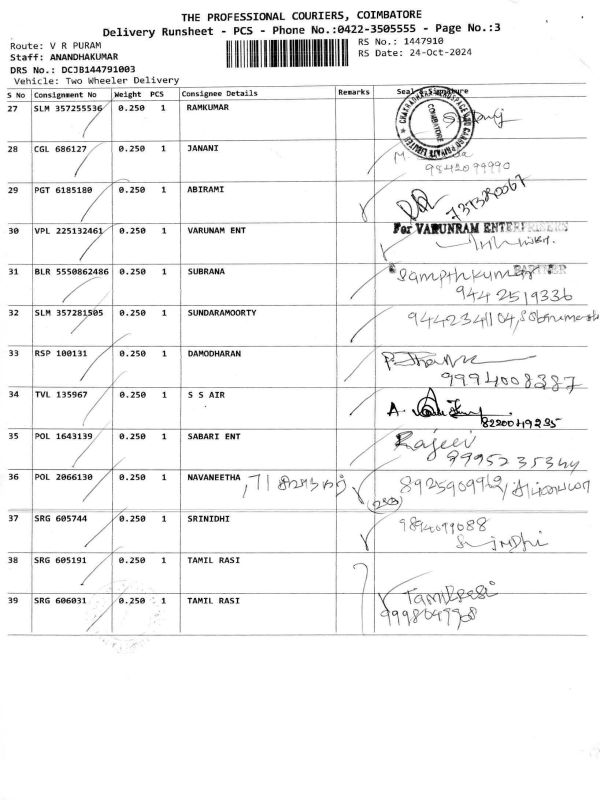 THE PROFESSIONAL COURIERS, COIMBATORE
Delivery Runsheet - PCS - Phone No.:0422-3505555 - Page No.:3
Route: V R PURAM
RS No.: 1447910
Staff: ANANDHAKUMAR
RS Date: 24-Oct-2024
DRS No.: DCJB144791003
Vehicle: Two Wheeler Delivery
S No Consignment No Weight PCS Consignee Details Remarks Seal & Signature
27 SLM 357255536 0.250 1 RAMKUMAR
COIMBATORE
28 CGL 686127 0.250 1 JANANI
9842099990
29 PGT 6185180 0.250 1 ABIRAMI
7373280067
30 VPL 225132461 0.250 1 VARUNAM ENT For VARUNRAM ENTERPRISERS
PARTNER
31 BLR 5550862486 0.250 1 SUBRANA Sampthkumar
9442519336
32 SLM 357281505 0.250 1 SUNDARAMOORTY 9442234104
33 RSP 100131 0.250 1 DAMODHARAN
9994008387
34 TVL 135967 0.250 1 S S AIR A.
8220049235
35 POL 1643139 0.250 1 SABARI ENT Rajeev
9995235344
36 POL 2066130 0.250 1 NAVANEETHA
37 SRG 605744 0.250 1 SRINIDHI 9894099088
Srinidhi
38 SRG 605191 0.250 1 TAMIL RASI
39 SRG 606031 0.250 1 TAMIL RASI TamilRasi